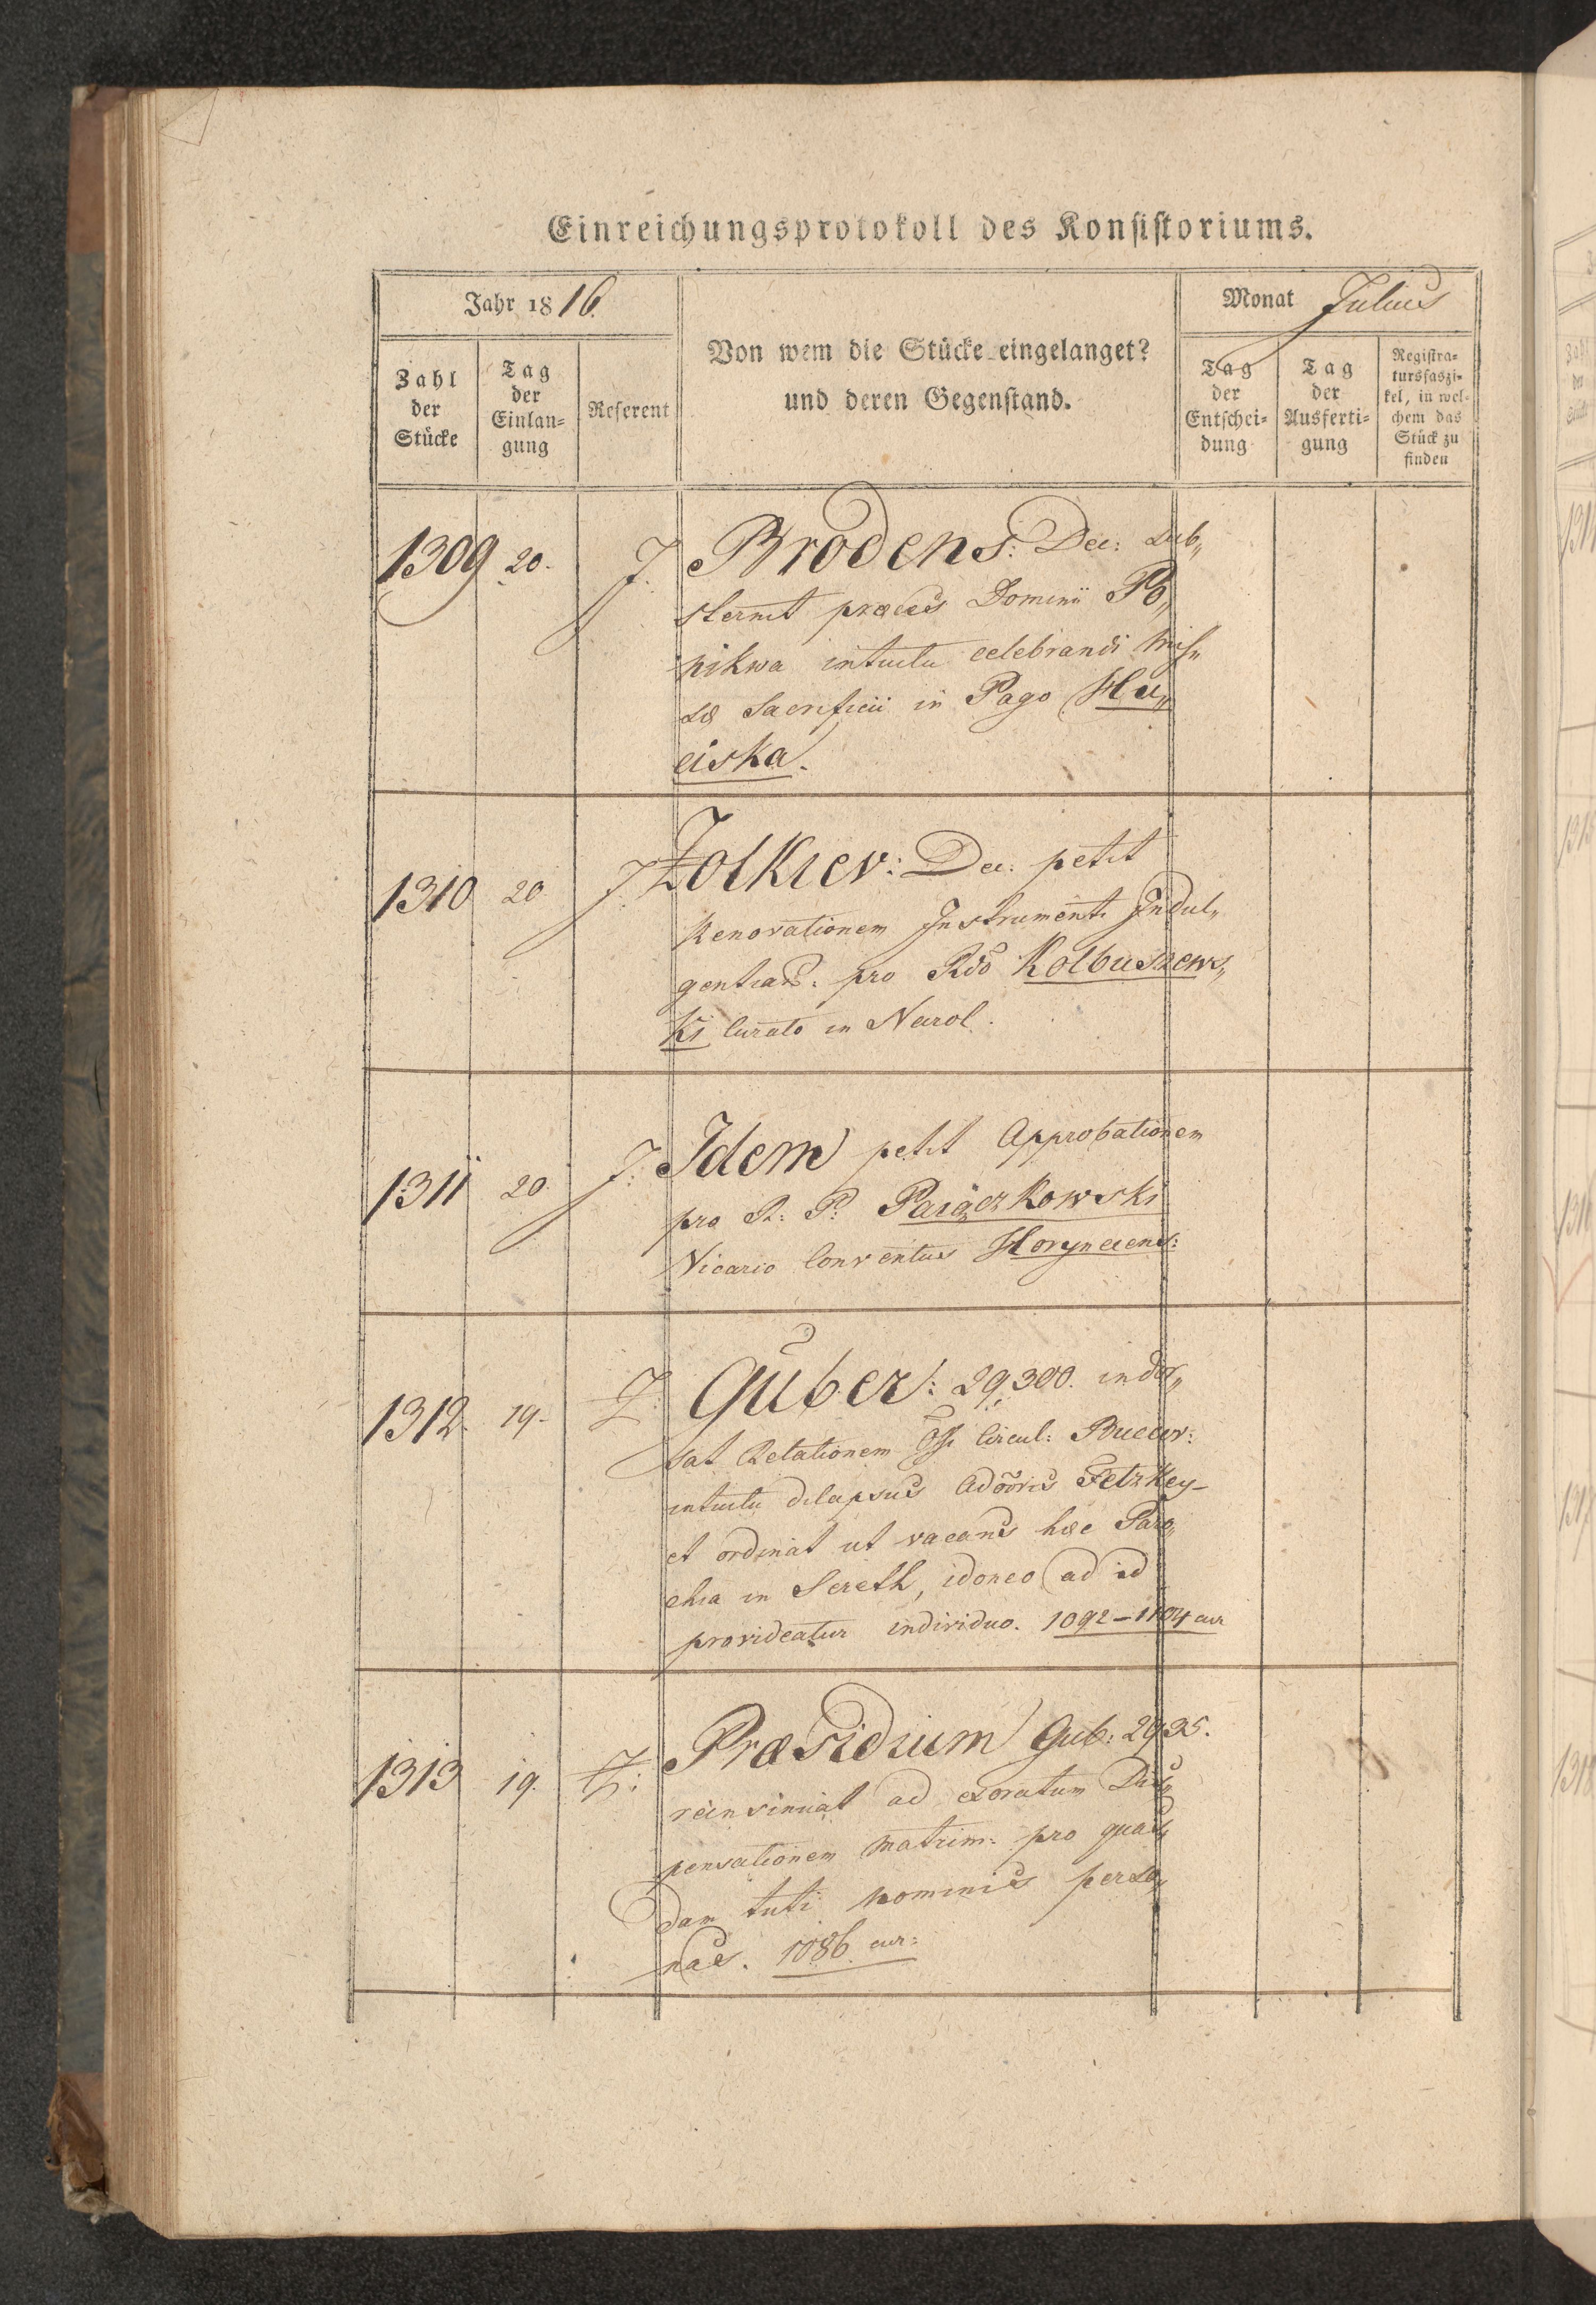 Einreichungsprotokoll des Konsistoriums.
Jahr 1816.
Monat Julius
Von wem die Stücke eingelanget?
und deren Gegenstand.
Zahl
der
Stücke
Tag
der
Einlan=
gung
Referent
Tag
der
Entschei=
dung
Tag
der
Ausferti=
gung
Registra=
tursfaszi=
kel, in wel=
chem das
Stück zu
finden
1309 20. J. Brodens: Dec: sub„
sternit preces Dominii Po„
nikwa intuitu celebrandi Mis„
sæ Sacrificii in Pago Hu„
ciska.
1310 20 J. Zolkiev: Dec: petit
Renovationem Instrumenti Indul„
gentiar: pro Rdo Kolbuszews„
Ki Curato in Narol.
1311 20. J: Idem petit Approbationem
pro R: P: Paiączkowski
Vicario Conventus Horynecens:
1312. 19- Z. Guber: 29,300. indor„
sat Relationem Offi Circul: Buccov:
intuitu dilapsus Adõoris Fetzkey-
et ordinat ut vacans hæc Paro„
chia in Sereth, idoneo ad id
provideatur individuo. 1092-1104 cur
1313 19. Z: Præsidium Gub: 2935.
reinsinuat ad exoratum Dis„
pensationem Matrim: pro quas„
dam tuti nominis perso„
nas. 1086 cur: